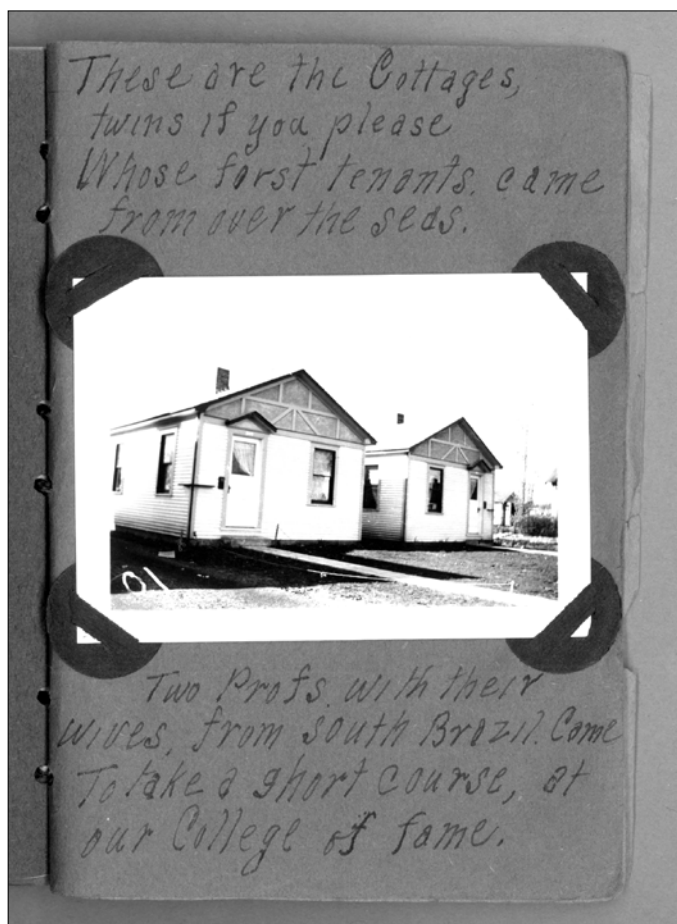 These are the Cottages,
twins if you please
Whose forst tenants. came
from over the seas.
10
Two Profs. with their
wives, from south Brazil. Came
To take a short course, at
our College of fame.